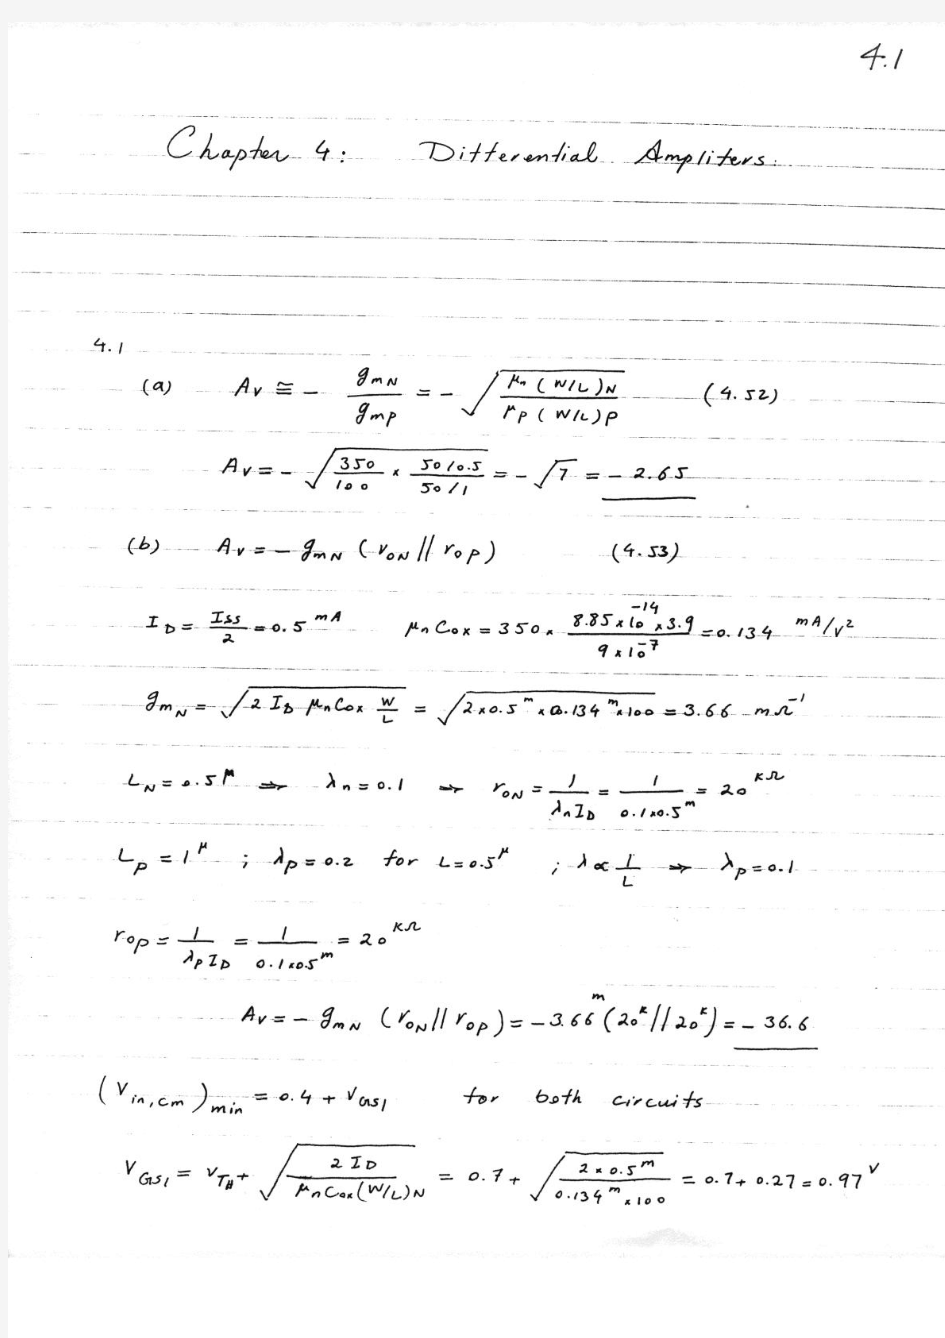 4.1
Chapter 4: Differential Amplifers:
4.1
(a) Av ≅ - gmN/gmp = - √(μn (W/L)N / μp (W/L)P) (4.52)
Av = - √(350/100 × (50/0.5)/(50/1)) = - √7 = - 2.65
(b) Av = - gmN (roN || rop) (4.53)
ID = Iss/2 = 0.5 mA μn Cox = 350 × (8.85 × 10^-14 × 3.9)/(9 × 10^-7) = 0.134 mA/V²
gmN = √(2 ID μn Cox W/L) = √(2×0.5^m × 0.134^m × 100) = 3.66 mΩ^-1
LN = 0.5^μ ⇒ λn = 0.1 ⇒ roN = 1/(λn ID) = 1/(0.1×0.5^m) = 20 KΩ
Lp = 1^μ ; λp = 0.2 for L = 0.5^μ ; λ ∝ 1/L ⇒ λp = 0.1
rop = 1/(λp ID) = 1/(0.1×0.5^m) = 20 KΩ
Av = - gmN (roN || rop) = - 3.66^m (20^k || 20^k) = - 36.6
(Vin,cm)min = 0.4 + VGS1 for both circuits
VGS1 = VTH + √(2 ID / μn Cox (W/L)N) = 0.7 + √(2 × 0.5^m / 0.134^m × 100) = 0.7 + 0.27 = 0.97 V